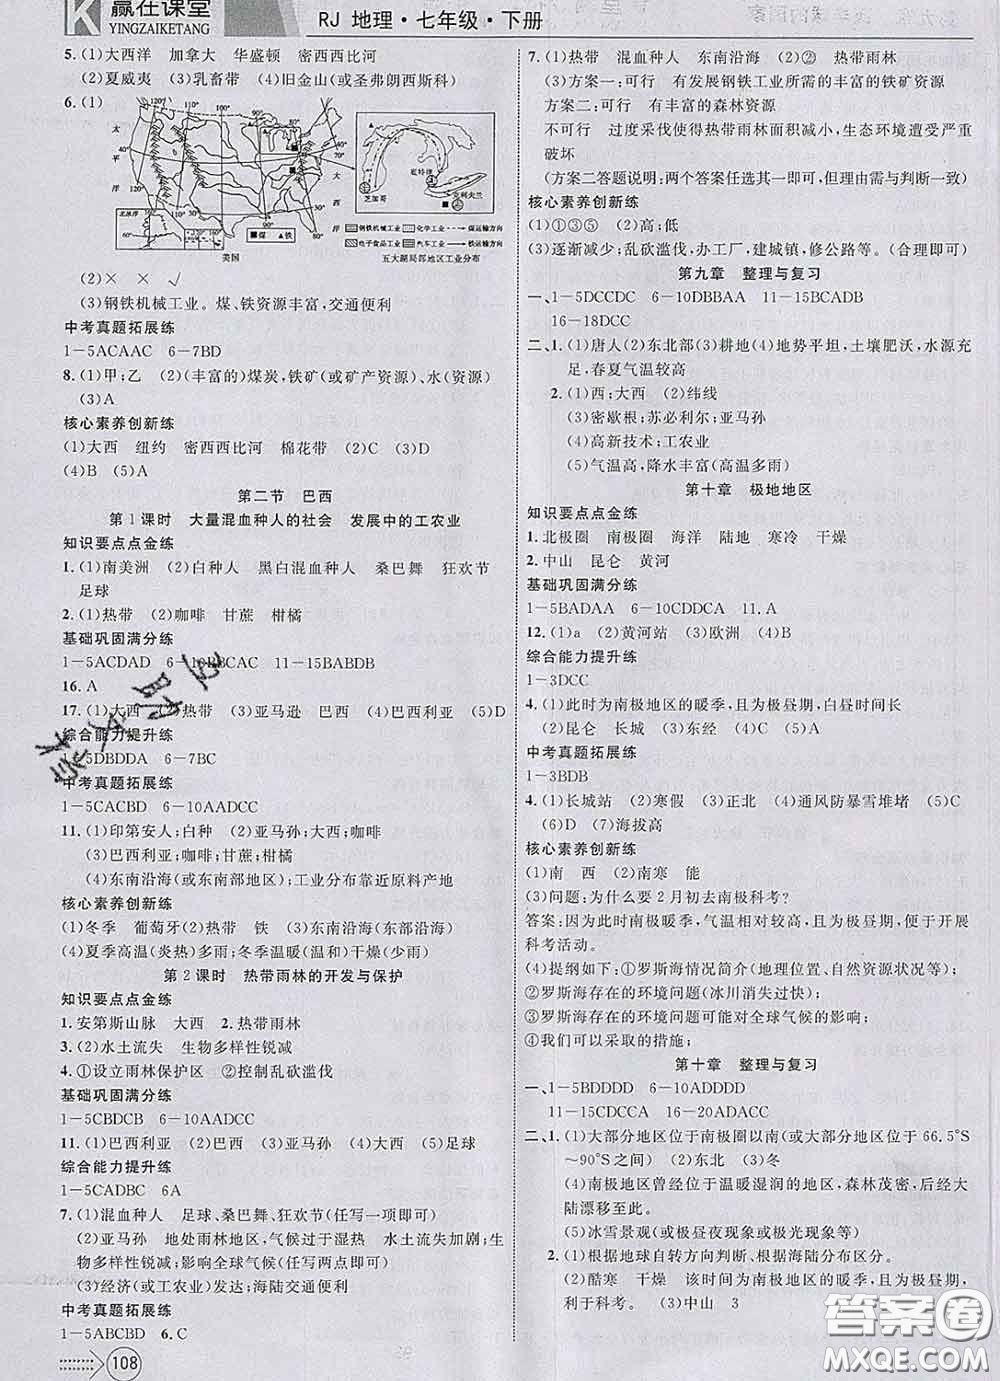 赢在课堂
YINGZAIKETANG
RJ 地理·七年级·下册
5.(1)大西洋 加拿大 华盛顿 密西西比河
(2)夏威夷 (3)乳畜带 (4)旧金山(或圣弗朗西斯科)
6.(1)
美国
五大湖局部地区工业分布
芝加哥
底特律
匹兹堡
钢铁机械工业 化学工业 煤运输方向
电子食品工业 汽车工业 铁运输方向
煤 铁
(2)× × √
(3)钢铁机械工业。煤、铁资源丰富,交通便利
中考真题拓展练
1-5ACAAC 6-7BD
8.(1)甲;乙 (2)(丰富的)煤炭,铁矿(或矿产资源)、水(资源)
(3)A
核心素养创新练
(1)大西 纽约 密西西比河 棉花带 (2)C (3)D
(4)B (5)A
第二节 巴西
第1课时 大量混血种人的社会 发展中的工农业
知识要点点金练
1.(1)南美洲 (2)白种人 黑白混血种人 桑巴舞 狂欢节
足球
2.(1)热带 (2)咖啡 甘蔗 柑橘
基础巩固满分练
1-5ACDAD 6-10BBCAC 11-15BABDB
16.A
17.(1)大西 (2)热带 (3)亚马逊 巴西 (4)巴西利亚 (5)D
综合能力提升练
1-5DBDDA 6-7BC
中考真题拓展练
1-5CACBD 6-10AADCC
11.(1)印第安人;白种 (2)亚马孙;大西;咖啡
(3)巴西利亚;咖啡;甘蔗;柑橘
(4)东南沿海(或东南部地区);工业分布靠近原料产地
核心素养创新练
(1)冬季 葡萄牙(2)热带 铁 (3)东南沿海(东部沿海)
(4)夏季高温(炎热)多雨;冬季温暖(温和)干燥(少雨)
第2课时 热带雨林的开发与保护
知识要点点金练
1.安第斯山脉 大西 2.热带雨林
3.(2)水土流失 生物多样性锐减
4.①设立雨林保护区 ②控制乱砍滥伐
基础巩固满分练
1-5CBDCB 6-10AADCC
11.(1)巴西利亚 (2)巴西 (3)亚马孙 (4)大西 (5)足球
综合能力提升练
1-5CADBC 6A
7.(1)混血种人 足球、桑巴舞、狂欢节(任写一项即可)
(2)亚马孙 地处雨林地区,气候过于湿热 水土流失加剧;生
物多样性锐减;影响全球气候(任写两点即可)
(3)经济(或工农业)发达;海陆交通便利
中考真题拓展练
1-5ABCBD 6.C
108
7.(1)热带 混血种人 东南沿海 (2)② 热带雨林
(3)方案一:可行 有发展钢铁工业所需的丰富的铁矿资源
方案二:可行 有丰富的森林资源
不可行 过度采伐使得热带雨林面积减小,生态环境遭受严重
破坏
(方案二答题说明:两个答案任选其一即可,但理由需与判断一致)
核心素养创新练
(1)①③⑤ (2)高;低
(3)逐渐减少;乱砍滥伐,办工厂,建城镇,修公路等。(合理即可)
第九章 整理与复习
一、1-5DCCDC 6-10DBBAA 11-15BCADB
16-18DCC
二、1.(1)唐人(2)东北部(3)耕地(4)地势平坦,土壤肥沃,水源充
足,春夏气温较高
2.(1)西;大西 (2)纬线
(3)密歇根;苏必利尔;亚马孙
(4)高新技术;工农业
(5)气温高,降水丰富(高温多雨)
第十章 极地地区
知识要点点金练
1.北极圈 南极圈 海洋 陆地 寒冷 干燥
2.中山 昆仑 黄河
基础巩固满分练
1-5BADAA 6-10CDDCA 11.A
12.(1)a (2)黄河站 (3)欧洲 (4)B
综合能力提升练
1-3DCC
4.(1)此时为南极地区的暖季,且为极昼期,白昼时间长
(2)昆仑 长城 (3)东经 (4)C (5)D
中考真题拓展练
1-3BDB
4.(1)长城站 (2)寒假 (3)正北 (4)通风防暴雪堆堵 (5)C
(6)D (7)海拔高
核心素养创新练
(1)南 西 (2)南寒 能
(3)问题:为什么要2月初去南极科考?
答案:因为此时南极暖季,气温相对较高,且为极昼期,便于开展
科考活动。
(4)提纲如下:①罗斯海情况简介(地理位置、自然资源状况等);
②罗斯海存在的环境问题(冰川消失过快);
③罗斯海存在的环境问题可能对全球气候的影响;
④我们可以采取的措施;
第十章 整理与复习
一、1-5BDDDD 6-10ADDDD
11-15CDCCA 16-20ADACC
二、1.(1)大部分地区位于南极圈以南(或大部分地区位于66.5°S
~90°S之间) (2)东北 (3)冬
(4)南极地区曾经位于温暖湿润的地区,森林茂密,后经大
陆漂移至此。
(5)冰雪景观(或极昼夜现象或极光现象等)
2.(1)根据地球自转方向判断、根据海陆分布区分。
(2)酷寒 干燥 该时间为南极地区的暖季,且为极昼期,有
利于科考。 (3)中山 3
答案圈
MXQE.COM